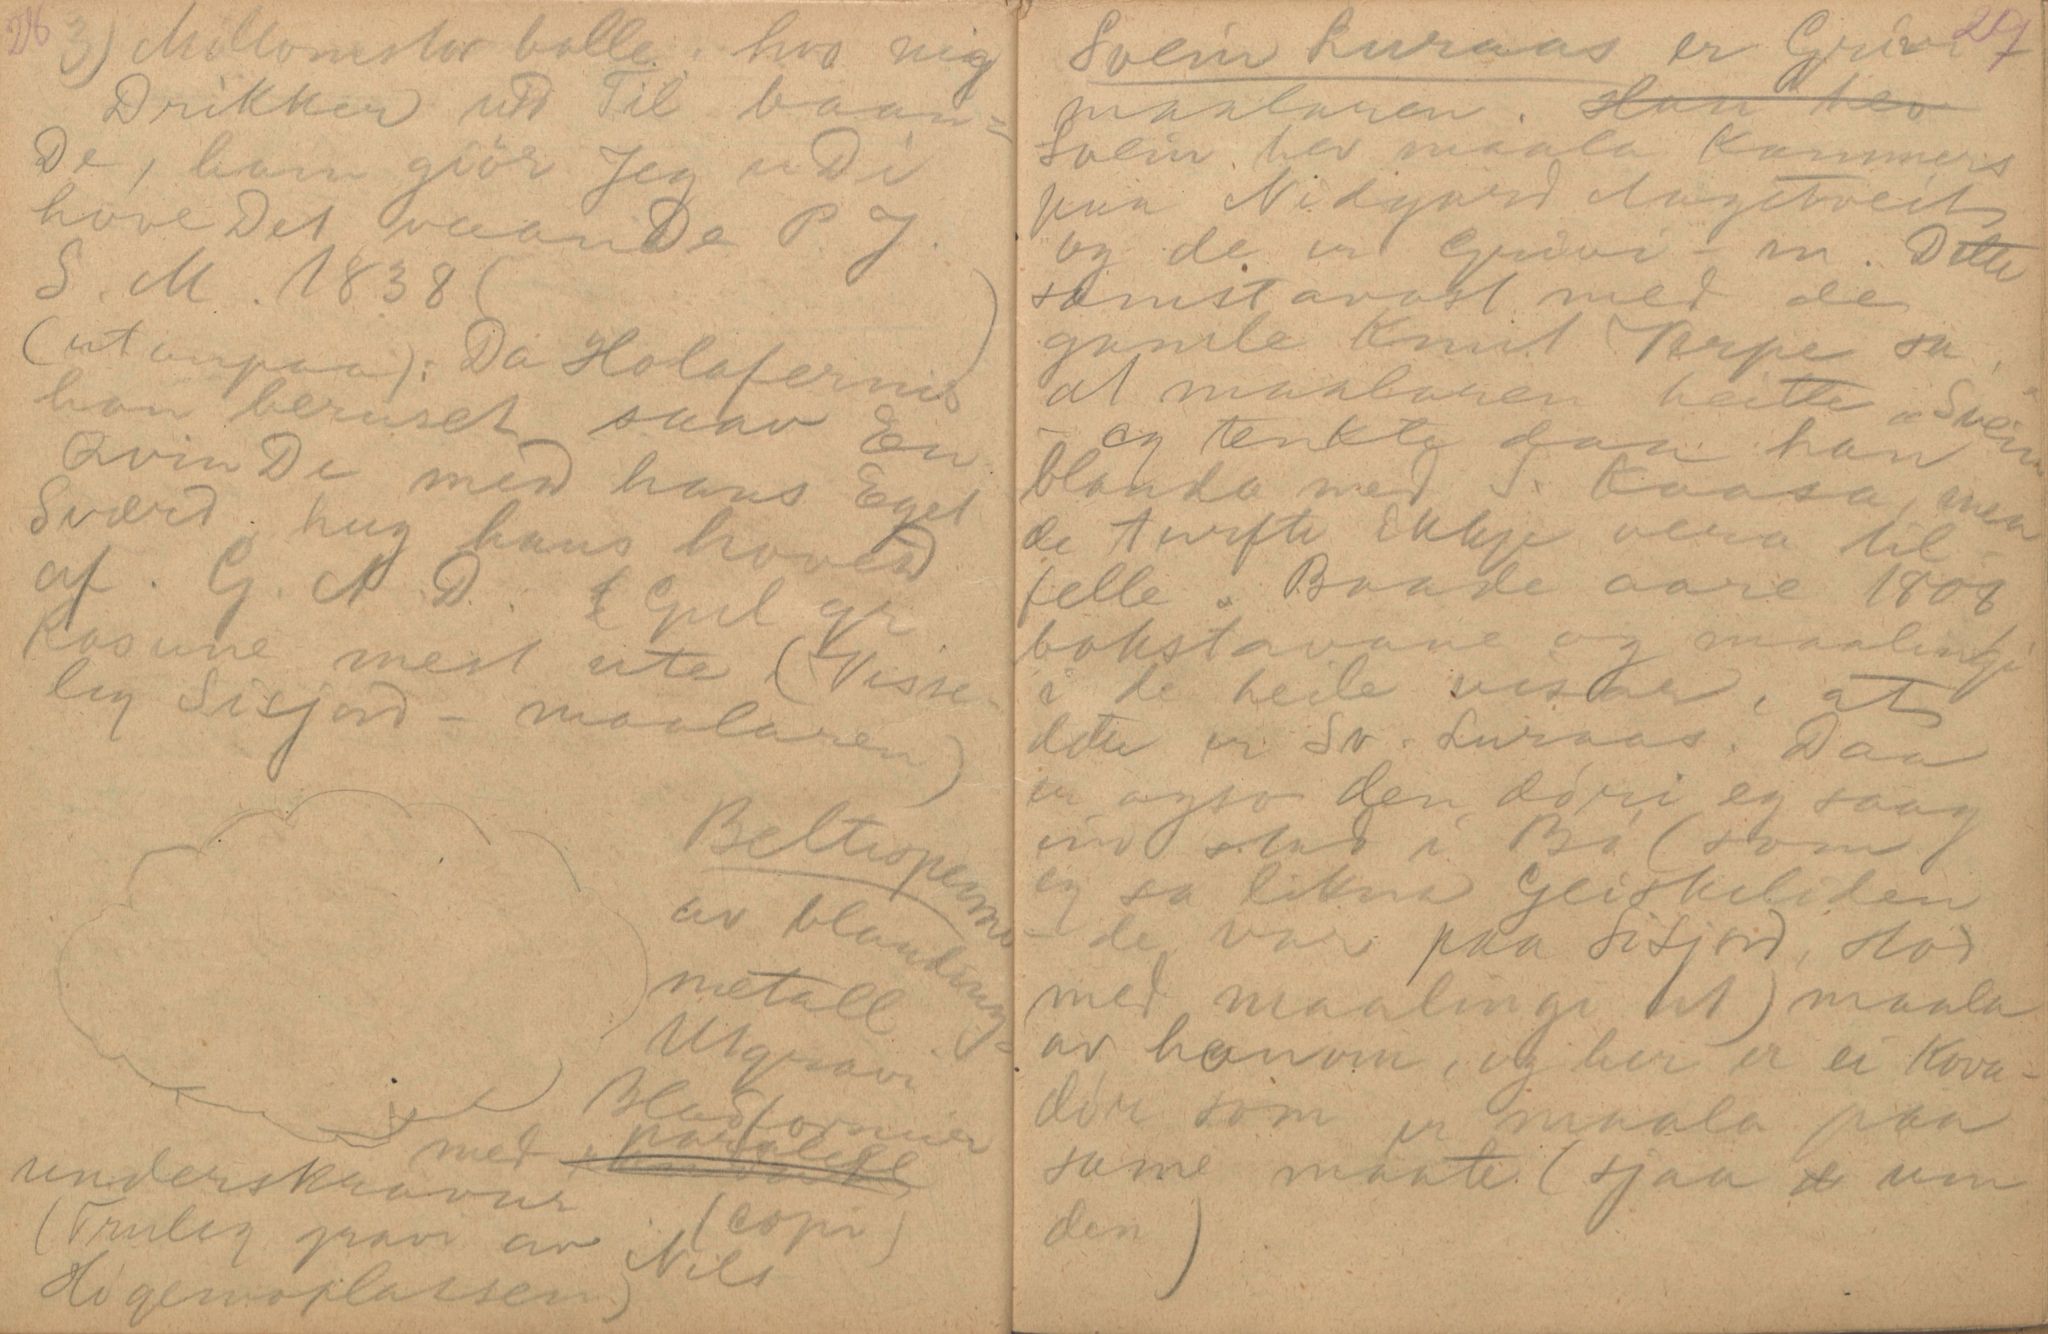 26
3) Millomstor bolle. hvo mig
Drikker ud Til baan=
De, ham giör Jeg uDi
hoveDet vaanDe P. J.
S. M. 1838 ( )
(utanpaa): Da Holafernis
han beruset saav En
QvinDe med hans Eget
Sværd hug hans hoved
af. G. A. D. Gul gr.
Rosune mest ute (Visse-
leg Sisjord-maalaren)
Beltespenne
av blanding=
metall
Utgravi
Bladformer
med parallell
underskravur
(copi)
(Truleg gravi av Nils
Higemoplassen)
27
Svein Luraas er Grivi
maalaren. Han hev
Svein hev maala Kammers
paa Nidgard Aagetveit
og de er Grivi - m. Dette
samstavast med de
gamle Knut Torpe sa,
at maalaren heitte "Svein"
- eg tenkte daa han
blanda med S. Kaasa, men
de turfte ikkje vera til-
felle. Baade aare 1808
bokstavane og maalingi
i de heile visar, at
dette er Sv. Luraas. Daa
er ogso den döri eg saag
ein stad i Bö (som
eg sa likna Geiskeliden
- de var paa Sisjord, stod
med maalingi ut) maala
av honom, og her er ei Kova-
dör som er maala paa
same maate (sjaa um
den)